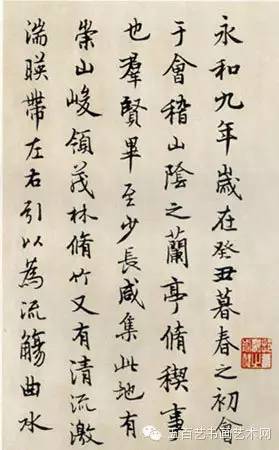 永和九年歲在癸丑暮春之初會
于會稽山陰之蘭亭脩稧事
也羣賢畢至少長咸集此地有
崇山峻領茂林脩竹又有清流激
湍暎帶左右引以為流觴曲水
五百艺书画艺术网